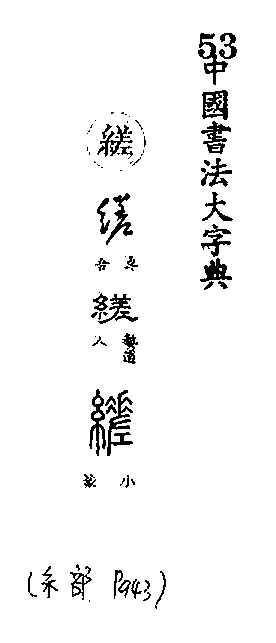 53
中國書法大字典
縒
縒
縒
縒
小篆
(糸部 P943)